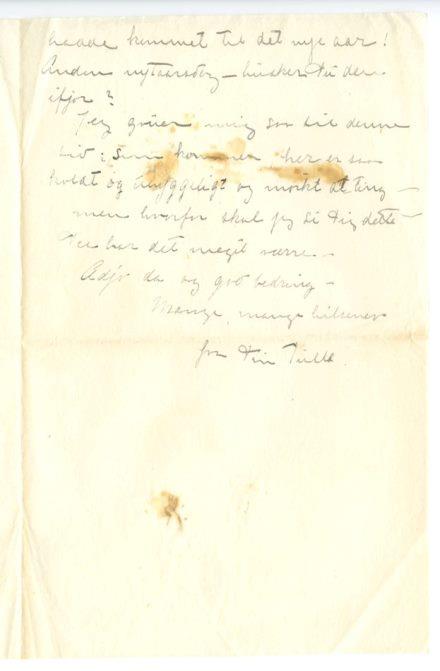 haade kommet til det nye aar!
Anden nytaarsdag – husker Du den
ifjor?
Jeg gruer mig saa til denne
tid, som kommer, her er saa
koldt og uhyggeligt og mørkt alting –
men hvorfor skal jeg si Dig dette –
Du har det meget værre –
Adjø da og god bedring –
Mange, mange hilsener
fra Din